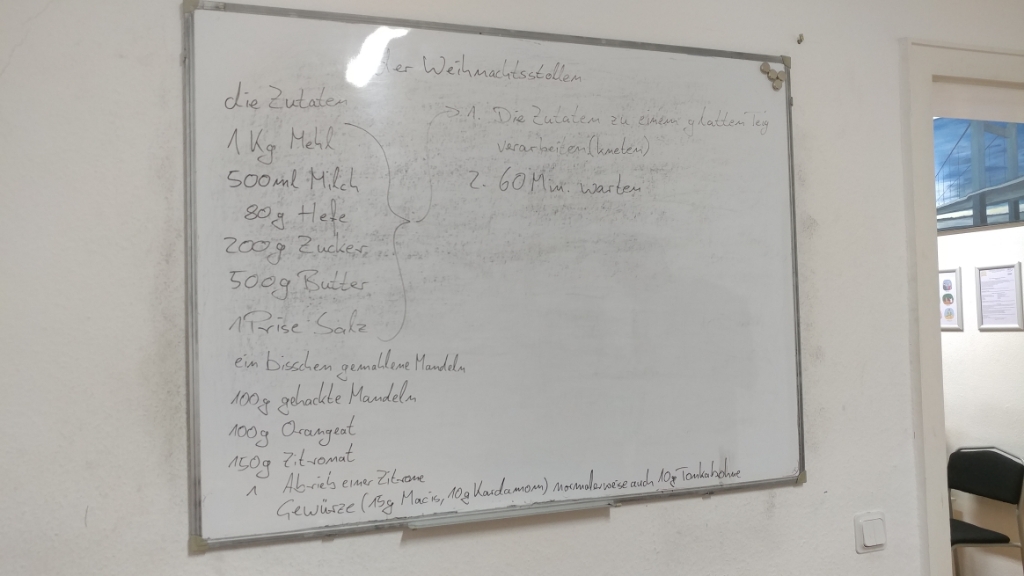 der Weihnachtsstollen
die Zutaten
1 Kg Mehl
500ml Milch
80g Hefe
200g Zucker
500g Butter
1 Prise Salz
ein bisschen gemahlene Mandeln
100g gehackte Mandeln
100g Orangeat
150g Zitronat
1 Abrieb einer Zitrone
Gewürze (15g Macis, 10g Kardamom) normalerweise auch 10g Tonkabohne
1. Die Zutaten zu einem glatten Teig
verarbeiten (kneten)
2. 60 Min. warten